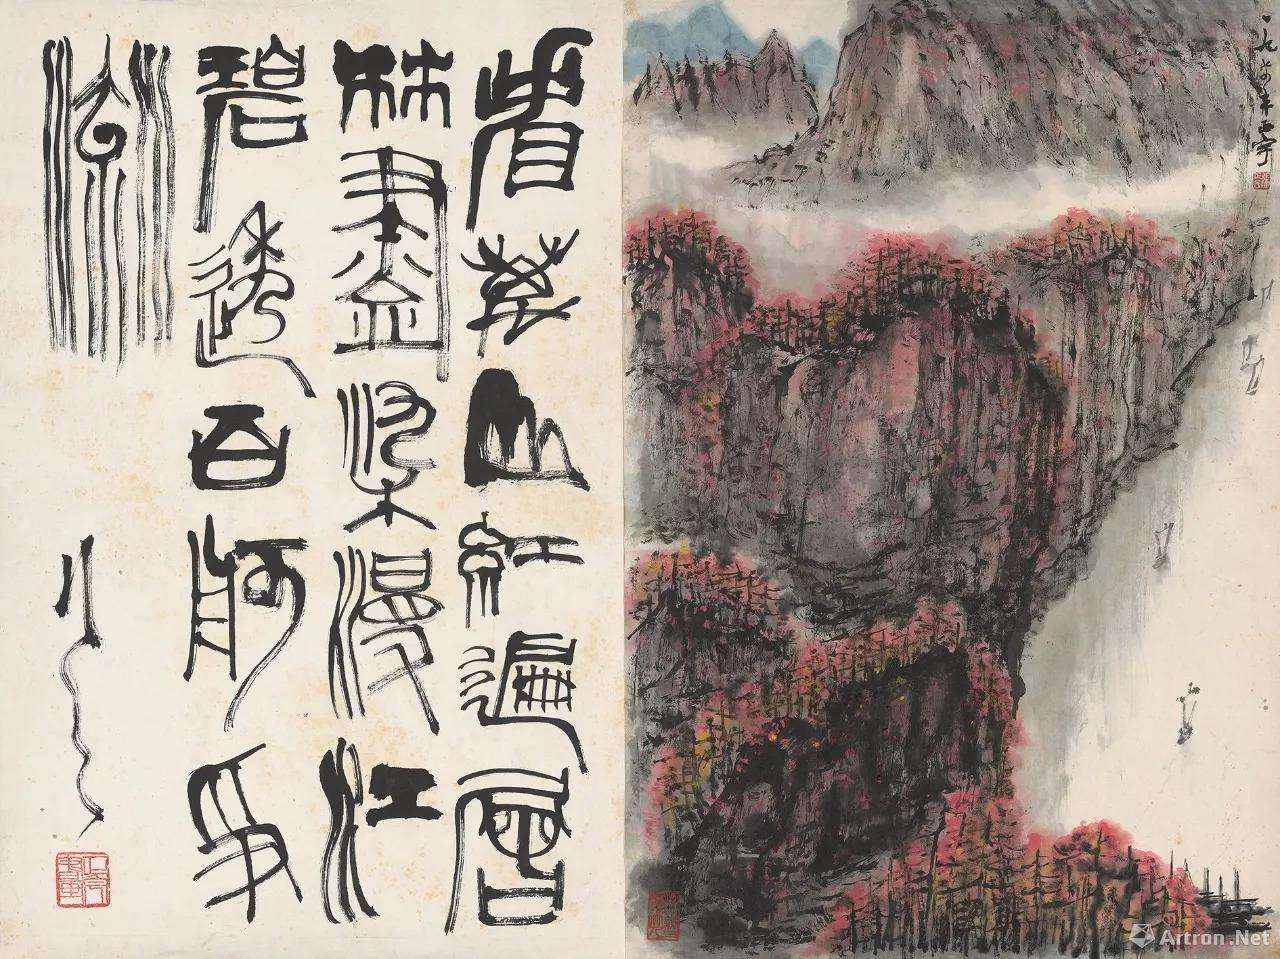 看萬山紅遍層
林盡染漫江
碧透百舸爭
流
Artron.Net